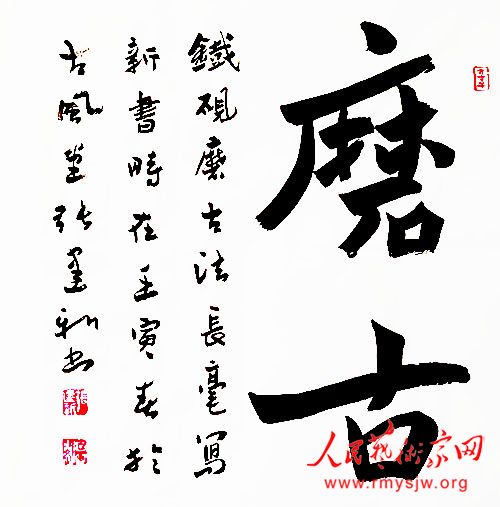 磨古
鐵硯磨古法長毫寫
新書時在壬寅春於
古風堂張書
人民藝術家网
www.rmysjw.org